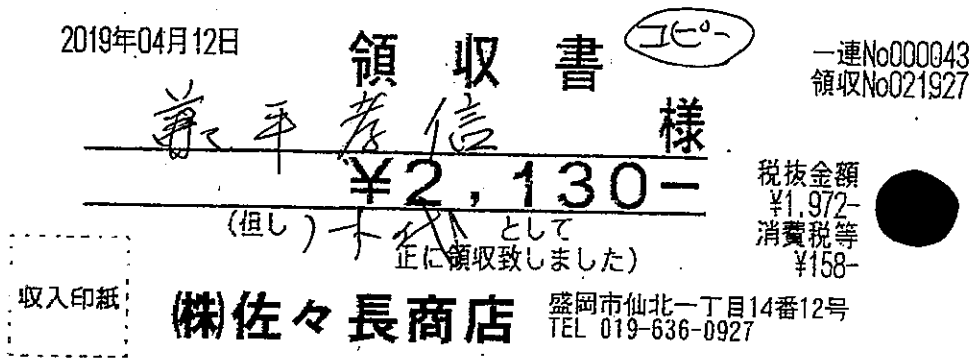 2019年04月12日
領収書
コピー
一連No000043
領収No021927
平孝信
様
¥2,130-
税抜金額
¥1,972-
消費税等
¥158-
(但し)
代 として
正に領収致しました)
収入印紙
㈱佐々長商店
盛岡市仙北一丁目14番12号
TEL 019-636-0927